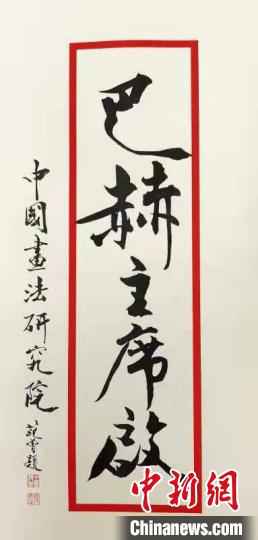 巴赫主席啟
中國畫法研究院
范曾題
中新网
Chinanews.com